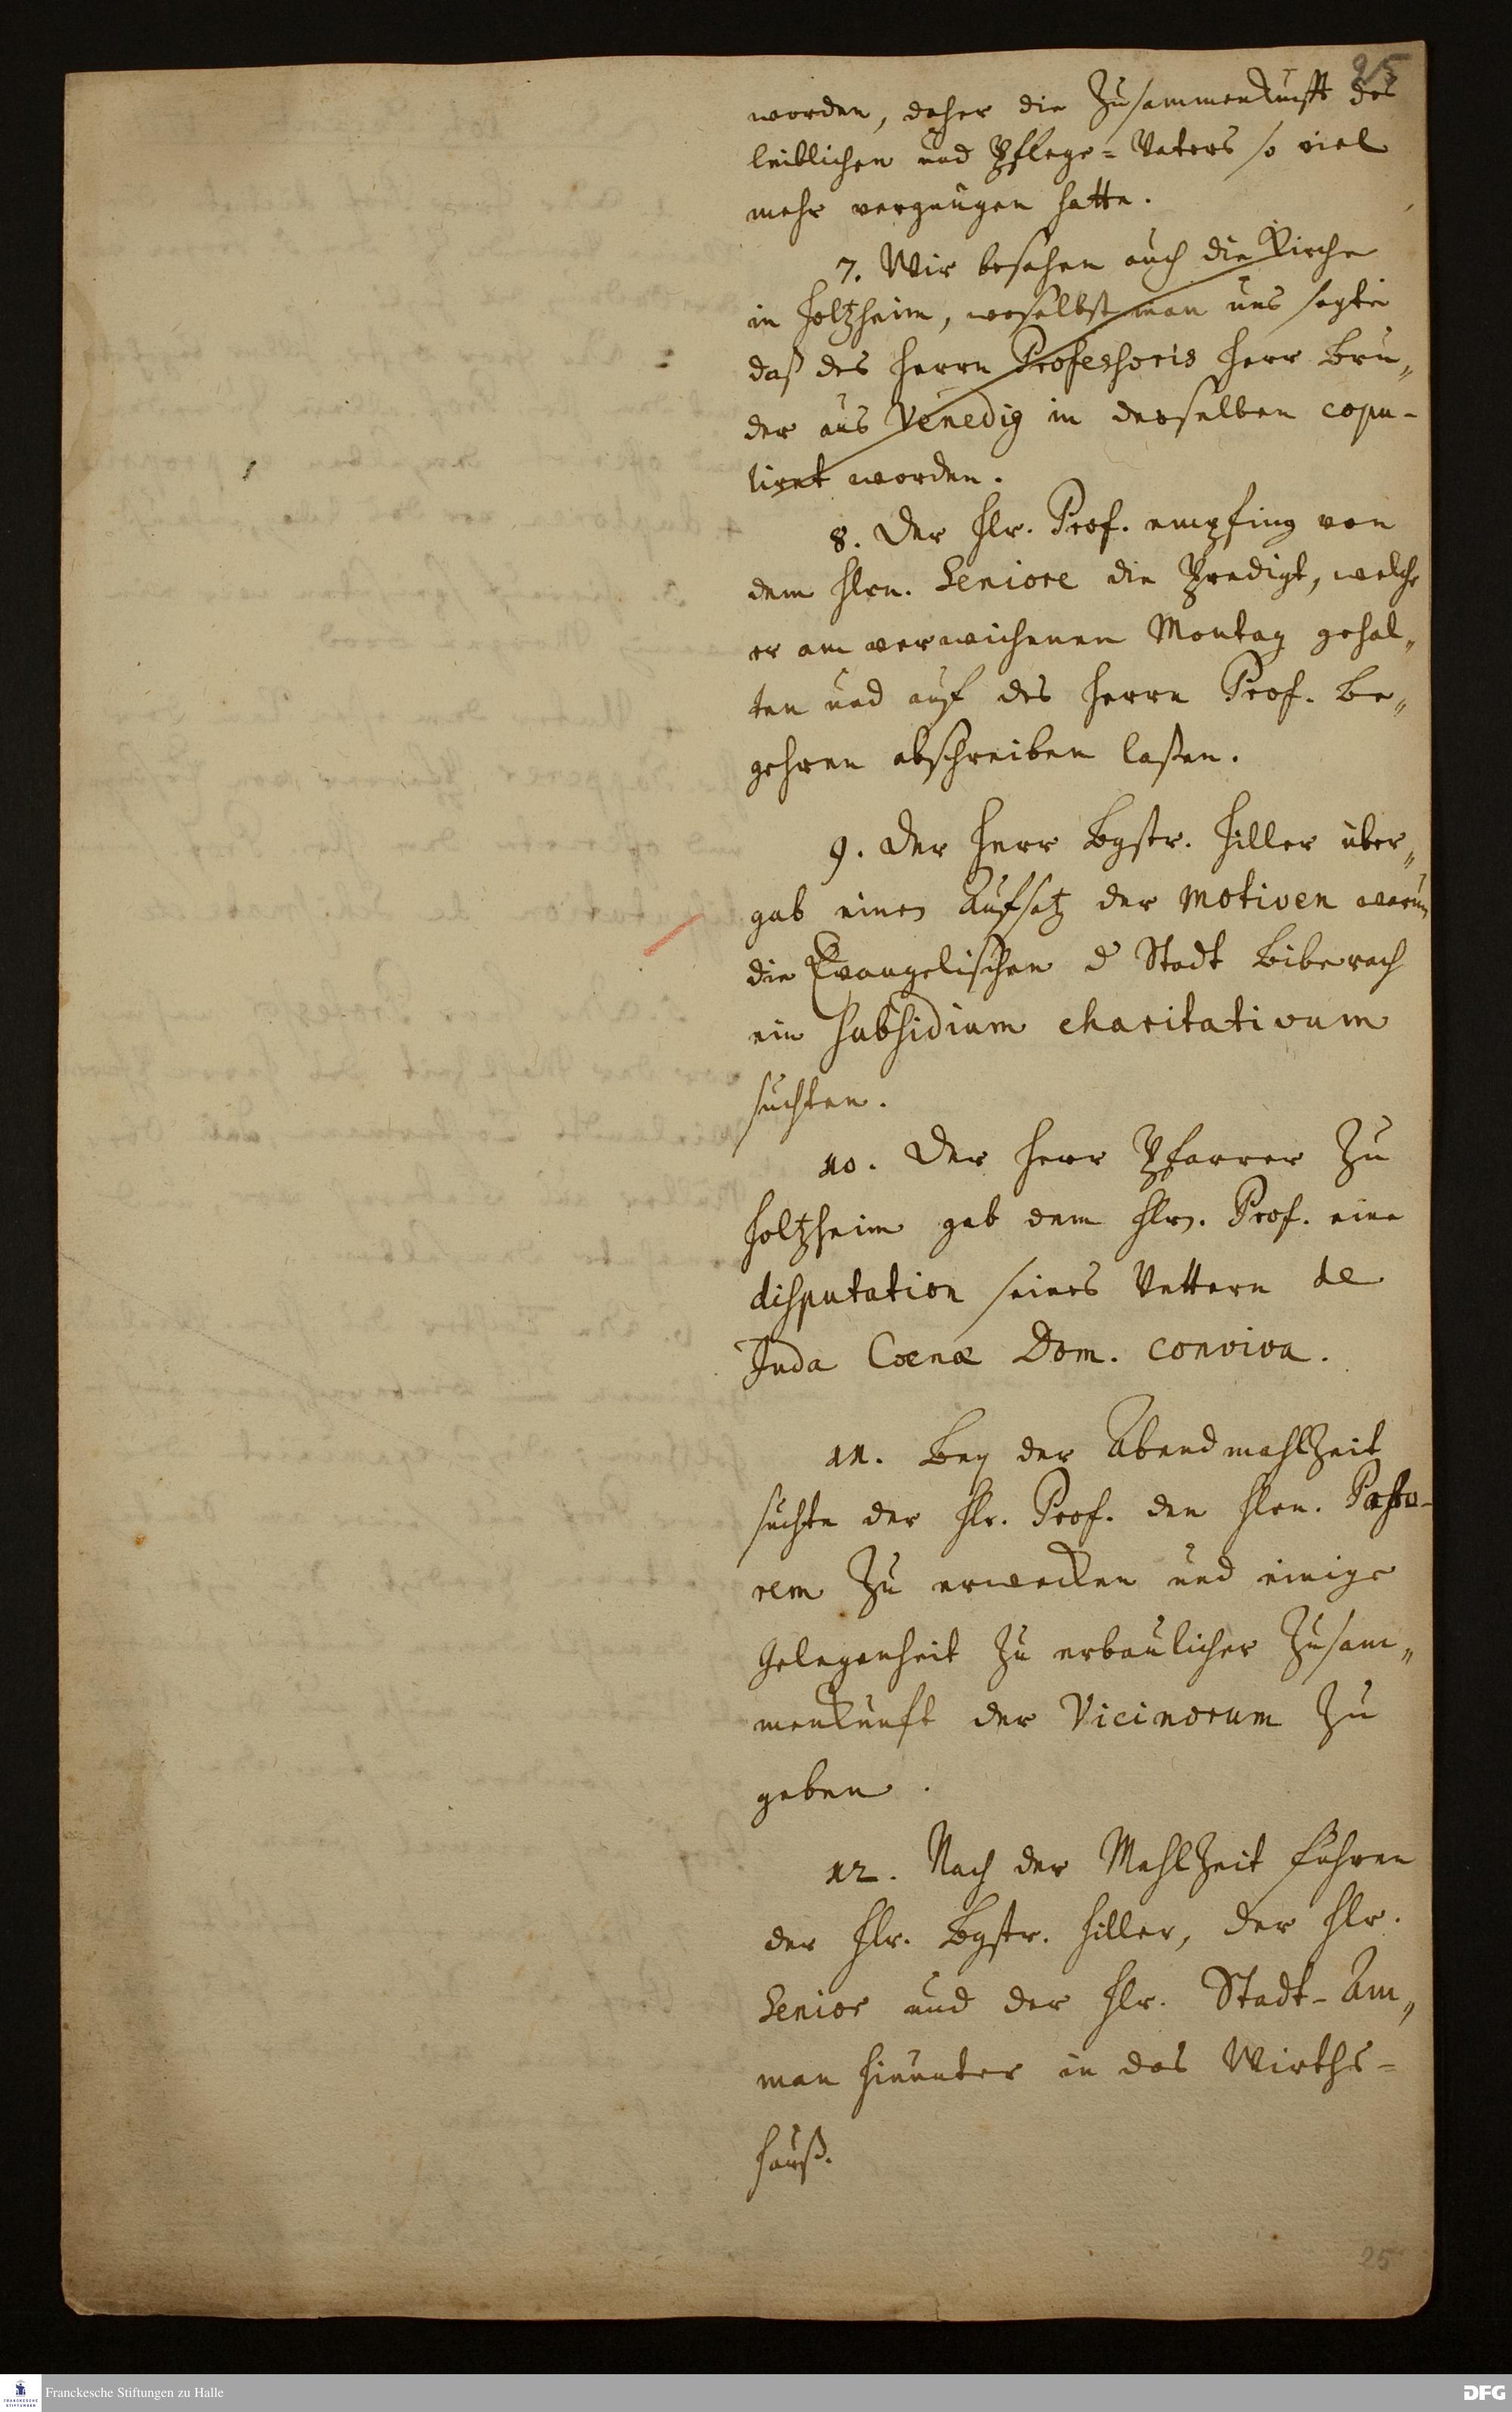 25
worden, daher die Zusammenkunfft des
leiblichen und Pflege-Vaters so viel
mehr vergnügen hatte.
7. Wir besahen auch die Kirche
in Holtzheim, woselbst man uns sagte
daß des Herrn Professoris Herr Bru„
der aus Venedig in derselben copu-
liret worden.
8. Der Hr. Prof. empfing von
dem Hrn. Seniore die Predigt, welche
er am verwichenen Montag gehal„
ten und auf des Herrn Prof. Be„
gehren abschreiben laßen.
9. Der Herr Bgstr. Hiller über„
gab einen Aufsatz der motiven warum
die Evangelischen d Stadt Biberach
ein subsidium charitativum
suchten.
10. Der Herr Pfarrer zu
Holtzheim gab dem Hrn. Prof. eine
disputation seines Vettern de
Juda Coenæ Dom. conviva.
11. Bey der AbendmahlZeit
suchte der Hr. Prof. den Hrn. Pasto-
rem zu erwecken und einige
Gelegenheit zu erbaulicher Zusam„
menkunft der Vicinorum zu
geben.
12. Nach der MahlZeit fuhren
der Hr. Bgstr. Hiller, der Hr.
Senior und der Hr. Stadt-Am„
man hinunter in das Wirths-
hauß.
25
Franckesche Stiftungen zu Halle
DFG